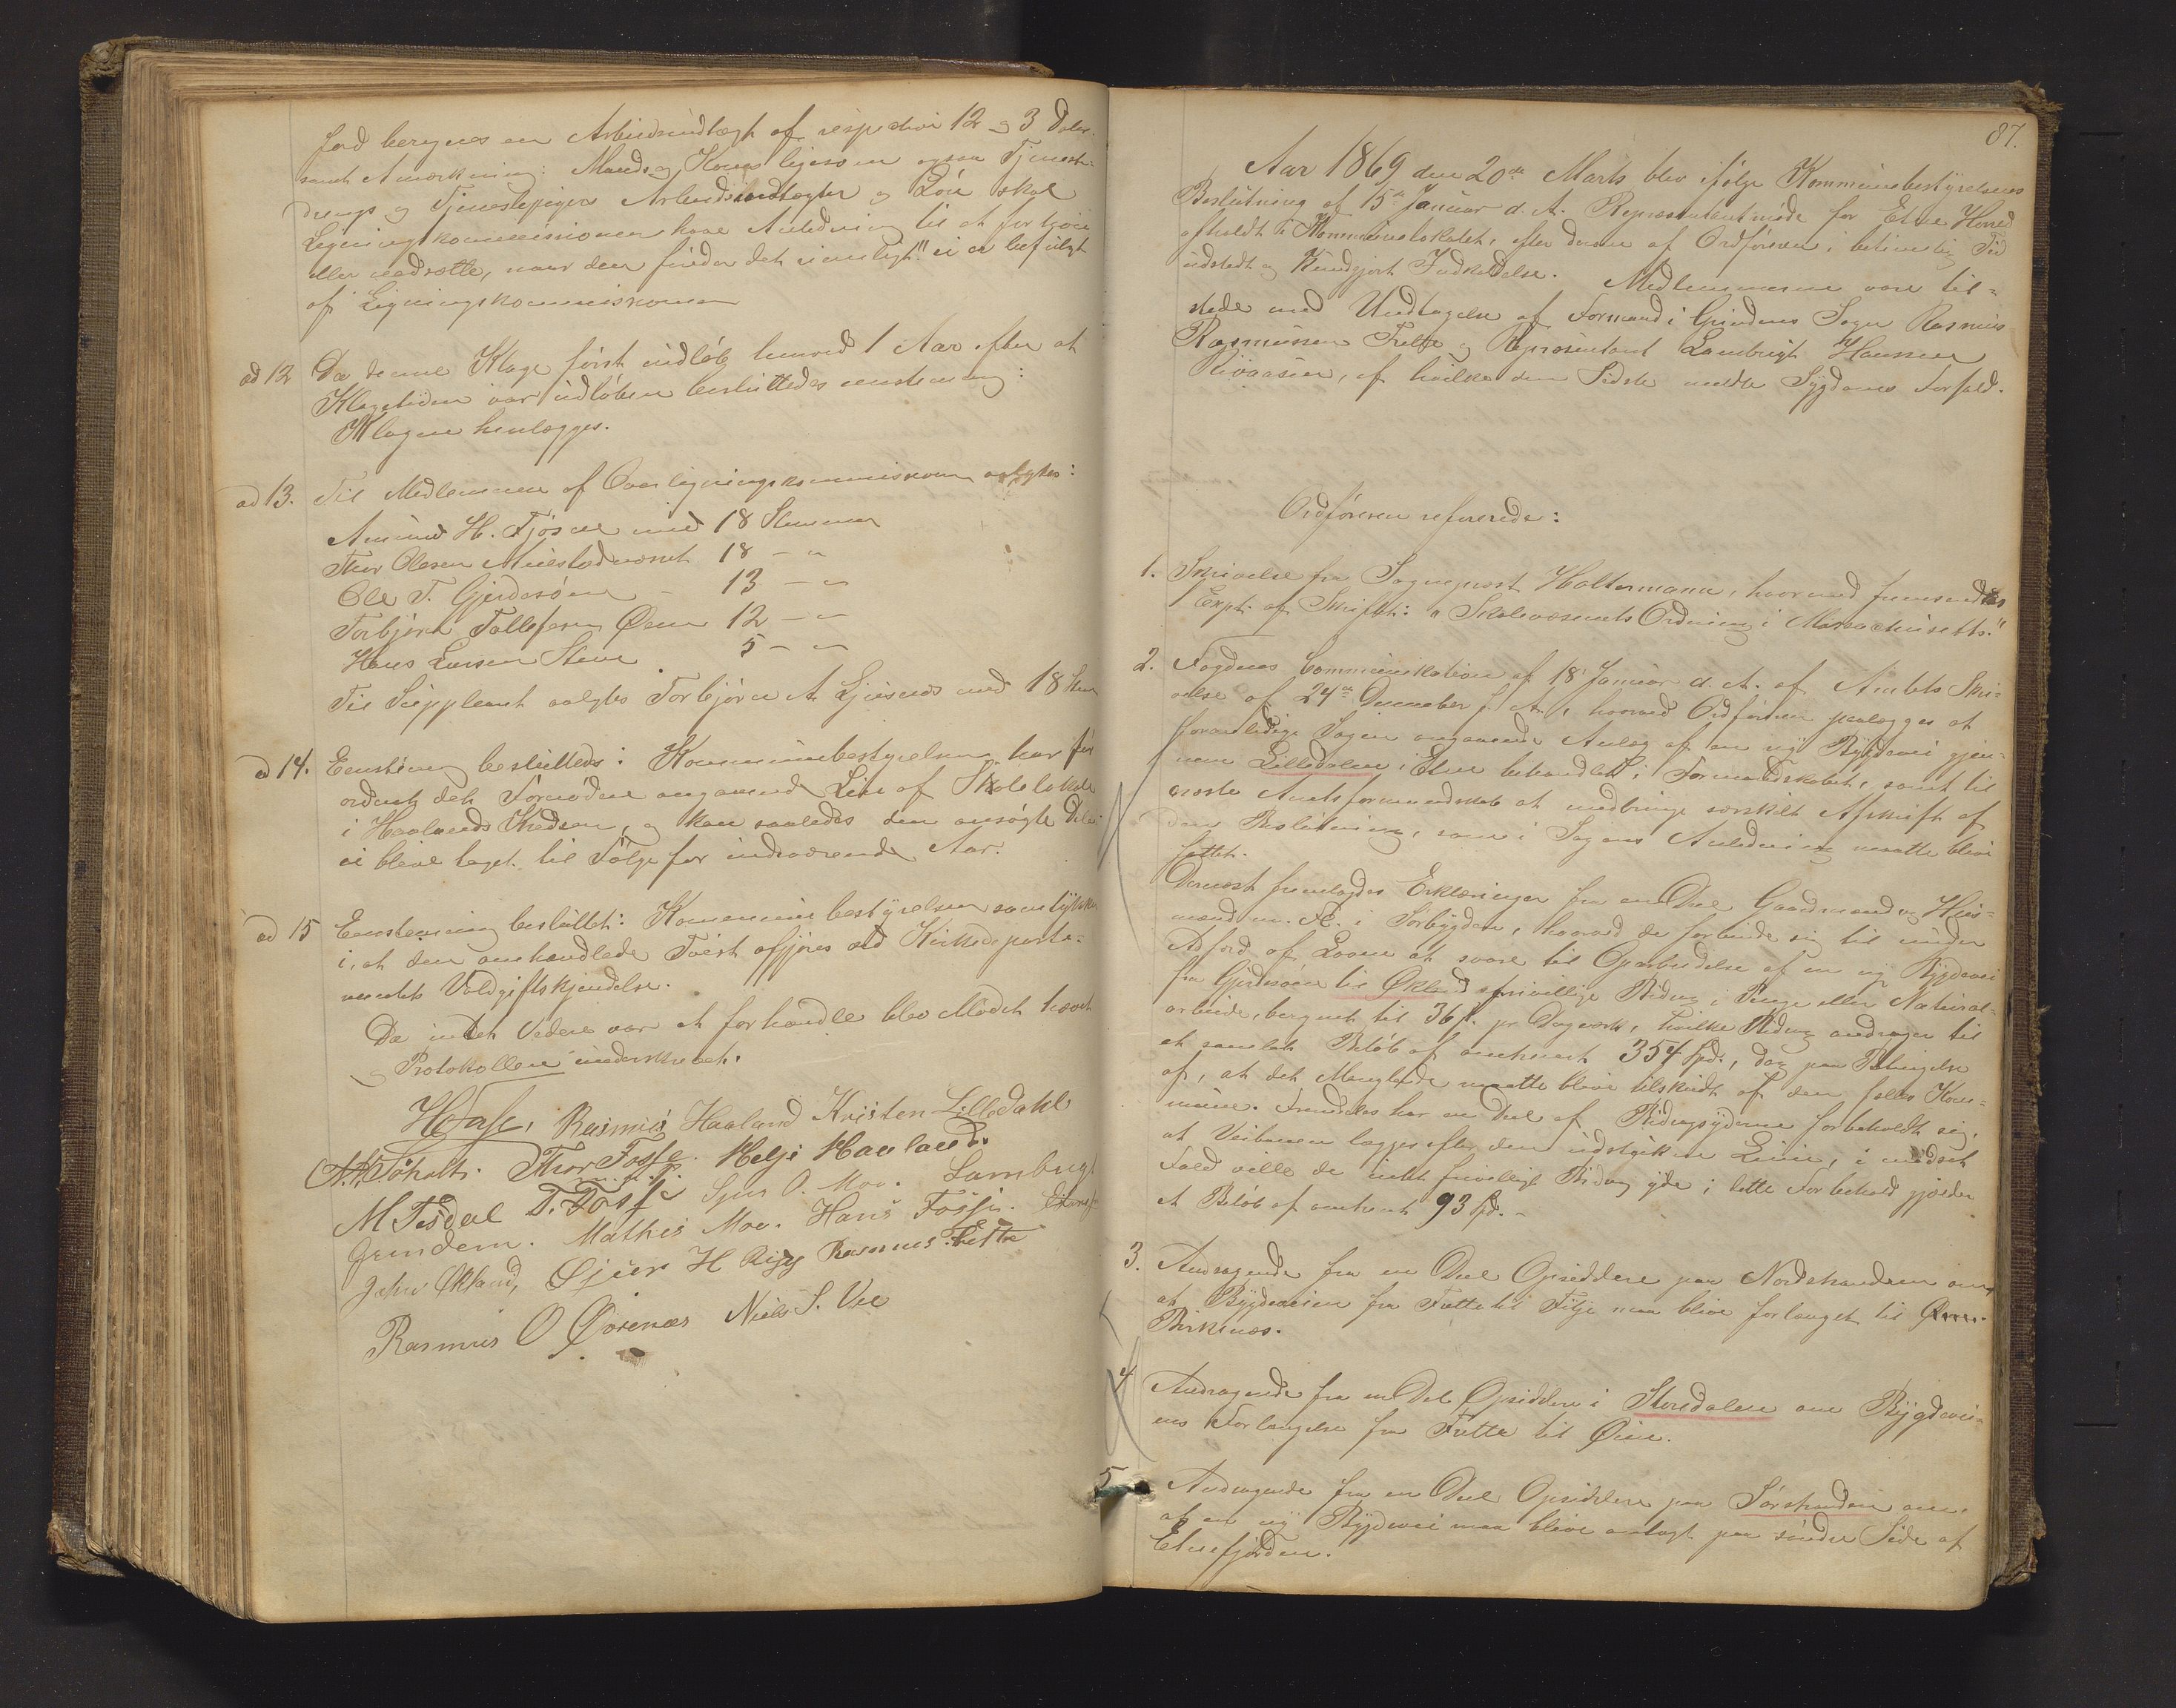 ford beregnes en Arbeidsindtægt af respective 12 og 3 Daler
samt Anmærkning: Mands og Kones ligesom ogsaa Tjeneste-
drengs og Tjenestepigers Arbeidsindtægter og Løn skal
Ligningskommissionen have Anledning til at forhøie
eller nedsætte, naar den finder det rimeligt." ei er befulgt
af Ligningskommissionen
ad 12 Da denne Klage først indløb henved 1 Aar efter at
Klagetiden var udløben besluttedes eenstemmig:
Klagen henlægges.
ad 13. Til Medlemmer af Overligningskommissionen valgtes:
Amund H. Fjøsne med 18 Stemmer
Thor Olesen Milestadnæset 18 - "
Ole T. Gjerdesøen - 13 - "
Torbjørn Tollefsen Øien 12 - "
Hans Larsen Stene 5 - "
Til Suppleant valgtes Torbjørn A. Ljusnes med 18 Stem
ad 14. Eenstemmig besluttedes: Kommunebestyrelsen har for
ordnet det Fornødne angaaende Leie af Skolelokale
i Haalands Kredsen, og kan saaledes den ansøgte
ei blive taget til Følge for indeværende Aar.
ad 15 Eenstemmig besluttet: Kommunebestyrelsen samtykker
i, at den omhandlede Tvist afgjøres ved Kirkedeparte-
mentets Voldgiftskjendelse.
Da intet Videre var at forhandle blev Mødet hævet
og Protokollen underskrevet.
H. Fasse, Rasmus Haaland Kristen Lilledahl
A. A. Søholt. Thor Fosse. Helje Haaland.
M Tesdal T. Fosse Sjur O. Moe. Lambregt
Grindem. Mathis Moe. Hans Fosse.
John Økland, Sjur H Rygg Rasmus Frette
Rasmus O Øvrenes Niels S. Vee
87.
Aar 1869 den 20de Marts blev ifølge Kommunebestyrelsens
Beslutning af 15de Januar d. A. Repræsentantmøde for Etne Herred
afholdt i Kommunelokalet, efter derom af Ordføreren i betimelig Tid
udstedt og kundgjort Indkaldelse. Medlemmerne vare til-
stede med Undtagelse af Formand i Grindems Sogn Rasmus
Rasmussen Frette og Repræsentant Lambregt Hansen
, af hvilke den Sidste meldte Sygdoms Forfald.
Ordføreren refererede:
1. Skrivelse fra Sogneprest Holtermann, hvormed fremsendtes
1 Expl. af Skriftet: "Skolevæsenets Ordning i Massachusetts."
2. Fogdens Communikation af 18 Januar d. A. af Amtets Skri-
velse af 24de December f. A., hvorved Ordføreren paalægges at
foranledige Sagen angaaende Anlæg af en ny Bygdevei gjen-
nem Lilledalen i Etne behandlet i Formandskabet, samt til
næste Amtsformandskab at medbringe særskilt Afskrift af
den Beslutning, som i Sagens Anledning maatte blive
fattet.
Dernæst fremlagdes Erklæringer fra en Deel Gaardmænd og Huus-
mænd m. Fl. i Sørbygden, hvorved de forbinde sig til under
Adfærd af Loven at svare til Oparbeidelse af en ny Bygdevei
fra Gjerdesøen til Økland frivillige Bidrag i Penge eller Natural-
arbeide, beregnet til 36 s. pr. Dagværk, hvilke Bidrag andrager til
et samlet Beløb af omtrent 354 Spd., dog paa Betingelse
af, at det Manglende maatte blive tilskudt af den fælles Kom-
mune. Fremdeles har en Deel af Bidragsyderne forbeholdt sig,
at Veilinien lægges efter den udstukne Linie, i modsat
Fald ville de intet frivilligt Bidrag yde; dette Forbehold gjælder
et Beløb af omtrent 93 Spd. -
3. Andragende fra en Deel Opsiddere paa Nordstranden om,
at Bygdeveien fra Fatte til Filje maa blive forlænget til
Birkenæs.
4 Andragende fra en Del Opsiddere i Stordalen om Bygdevei-
ens Forlængelse fra Frette til Øiene.
5 Andragende fra en Deel Opsiddere paa Sørstranden om,
at en ny Bygdevei maa blive anlagt paa søndre Side af
Etnefjorden.